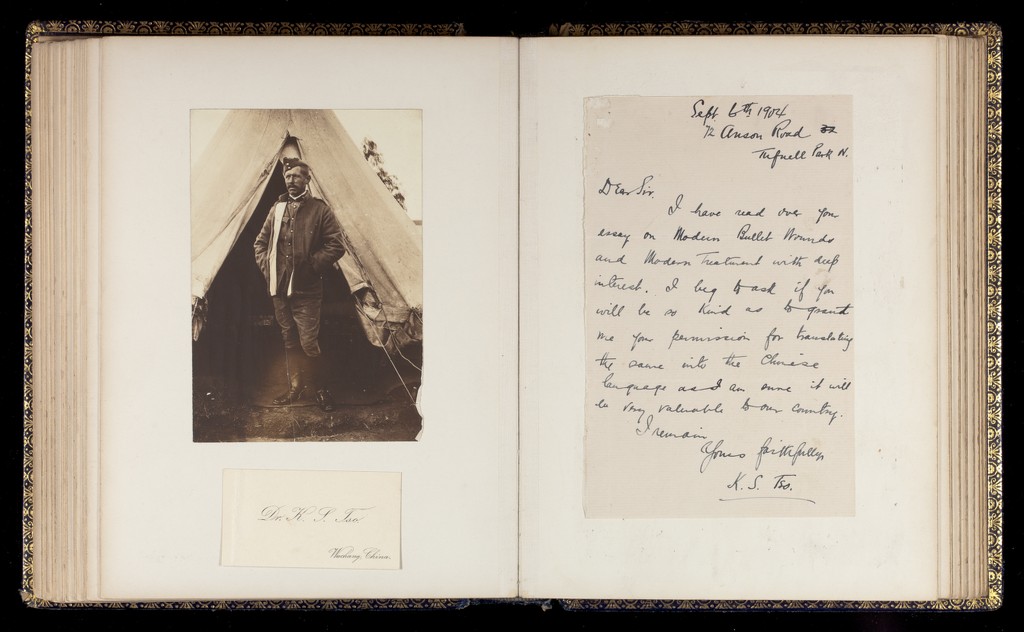 Dr. K. S. Tso
Wuchang, China.
Sept. 6th 1904
72 Anson Road
Tufnell Park N.
Dear Sir,
I have read over your
essay on Modern Bullet Wounds
and Modern Treatment with deep
interest. I beg to ask if you
will be so kind as to grant
me your permission for translating
the same into the Chinese
language as I am sure it will
be very valuable to our country.
I remain
Yours faithfully
K. S. Tso.